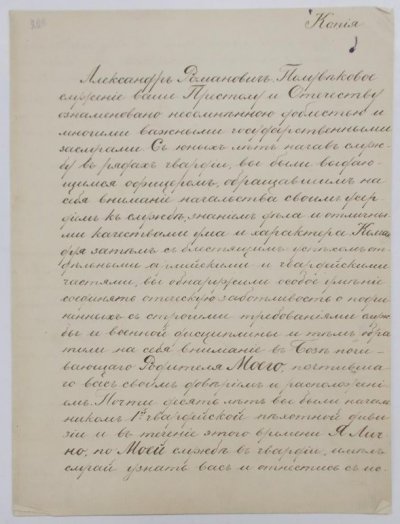 Копія
Александръ Романовичъ. Полувѣковое
служеніе ваше Престолу и Отечеству
ознаменовано неизмѣнною доблестью и
многими важными государственными
заслугами. Съ юныхъ лѣтъ начавъ служ-
бу въ рядахъ гвардіи, вы были выдаю-
щимся офицеромъ, обращавшимъ на
себя вниманіе начальства своимъ усер-
діемъ къ службѣ, знаніемъ дѣла и отличны-
ми качествами ума и характера. Коман-
дуя затѣмъ съ блестящимъ успѣхомъ от-
дѣльными армейскими и гвардейскими
частями, вы обнаружили особое умѣніе
соединять отеческую заботливость о подчи-
ненныхъ съ строгими требованіями служ-
бы и военной дисциплины и тѣмъ обра-
тили на себя вниманіе въ Бозѣ почи-
вающаго Родителя Моего, почтивша-
го васъ своимъ довѣріемъ и расположені-
емъ. Почти девять лѣтъ вы были началь-
никомъ 1й гвардейской пѣхотной диви-
зіи и въ теченіе этого времени Я Лич-
но, по Моей службѣ въ гвардіи, имѣлъ
случай узнать васъ и отнестись съ ис-